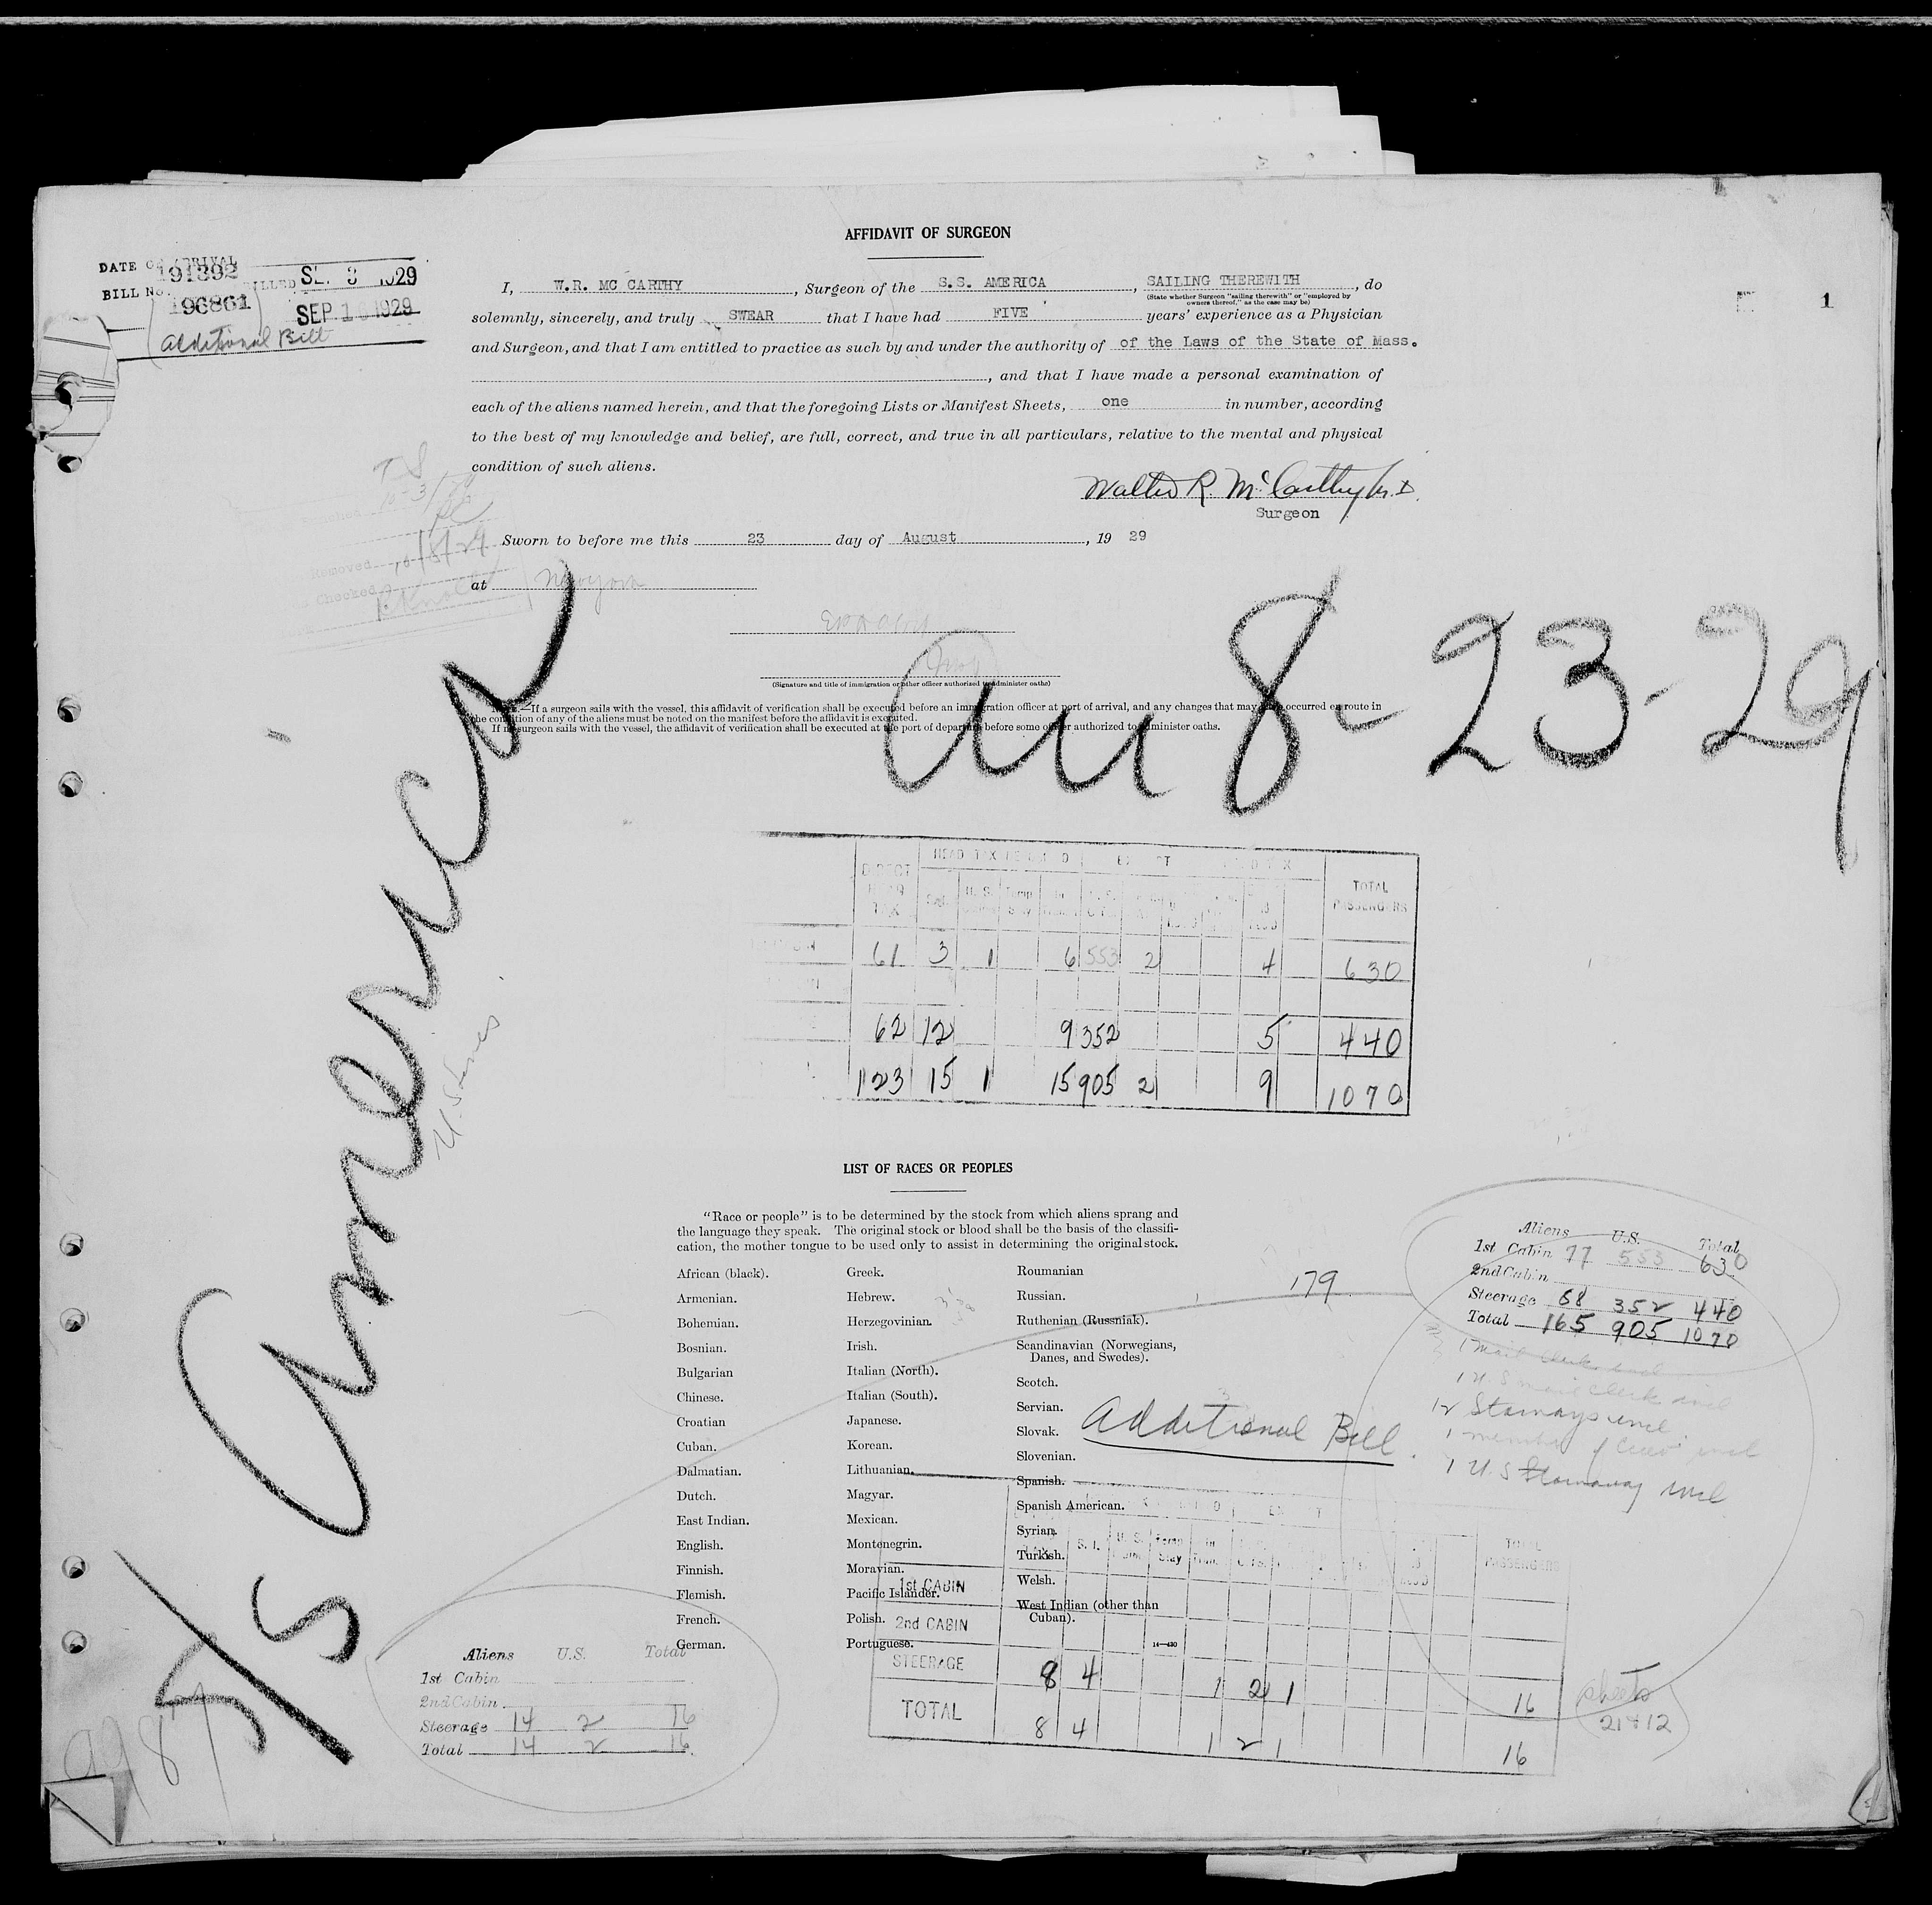 AFFIDAVIT OF SURGEON
DATE OF ARRIVAL
191392
BILL No. BILLED SE. 3 1929
196861 SEP 1 1929
Additional Bill
1
I, W.R. MC CARTHY, Surgeon of the S.S. AMERICA, SAILING THEREWITH, do
(State whether Surgeon "sailing therewith" or "employed by
owners thereof," as the case may be)
solemnly, sincerely, and truly SWEAR that I have had FIVE years' experience as a Physician
and Surgeon, and that I am entitled to practice as such by and under the authority of of the Laws of the State of Mass.
, and that I have made a personal examination of
each of the aliens named herein, and that the foregoing Lists or Manifest Sheets, one in number, according
to the best of my knowledge and belief, are full, correct, and true in all particulars, relative to the mental and physical
condition of such aliens.
Walter R. McCarthy M.D.
Surgeon
Removed
Checked
Sworn to before me this 23 day of August, 19 29
at New York
(Signature and title of immigration or other officer authorized to administer oaths)
NOTE.—If a surgeon sails with the vessel, this affidavit of verification shall be executed before an immigration officer at port of arrival, and any changes that may have occurred en route in
the condition of any of the aliens must be noted on the manifest before the affidavit is executed.
If no surgeon sails with the vessel, the affidavit of verification shall be executed at the port of departure before some officer authorized to administer oaths.
S/S America
U.S. Lines
8-23-29
DIRECT HEAD TAX
TOTAL PASSENGERS
61 3 1 6 553 2 4 630
62 12 9 352 5 440
123 15 1 15 905 2 9 1070
LIST OF RACES OR PEOPLES
"Race or people" is to be determined by the stock from which aliens sprang and
the language they speak. The original stock or blood shall be the basis of the classifi-
cation, the mother tongue to be used only to assist in determining the original stock.
African (black).
Armenian.
Bohemian.
Bosnian.
Bulgarian
Chinese.
Croatian
Cuban.
Dalmatian.
Dutch.
East Indian.
English.
Finnish.
Flemish.
French.
German.
Greek.
Hebrew.
Herzegovinian.
Irish.
Italian (North).
Italian (South).
Japanese.
Korean.
Lithuanian.
Magyar.
Mexican.
Montenegrin.
Moravian.
Pacific Islander.
Polish.
Portuguese.
Roumanian
Russian.
Ruthenian (Russniak).
Scandinavian (Norwegians,
Danes, and Swedes).
Scotch.
Servian.
Slovak.
Slovenian.
Spanish.
Spanish American.
Syrian.
Turkish.
Welsh.
West Indian (other than
Cuban).
14—430
179
Aliens U.S. Total
1st Cabin 77 553 630
2nd Cabin
Steerage 68 352 440
Total 165 905 1070
1 Mail Clerk incl
1 U.S mail Clerk incl
12 Stowaways incl
1 member of Crew incl
1 U.S Stowaway incl
Additional Bill
S. I. U. S. Temp Stay In Tran.
TOTAL PASSENGERS
1st CABIN
2nd CABIN
STEERAGE 8 4 1 2 1 16
TOTAL 8 4 1 2 1 16
sheets
21 & 12
Aliens U.S. Total
1st Cabin
2nd Cabin
Steerage 14 2 16
Total 14 2 16